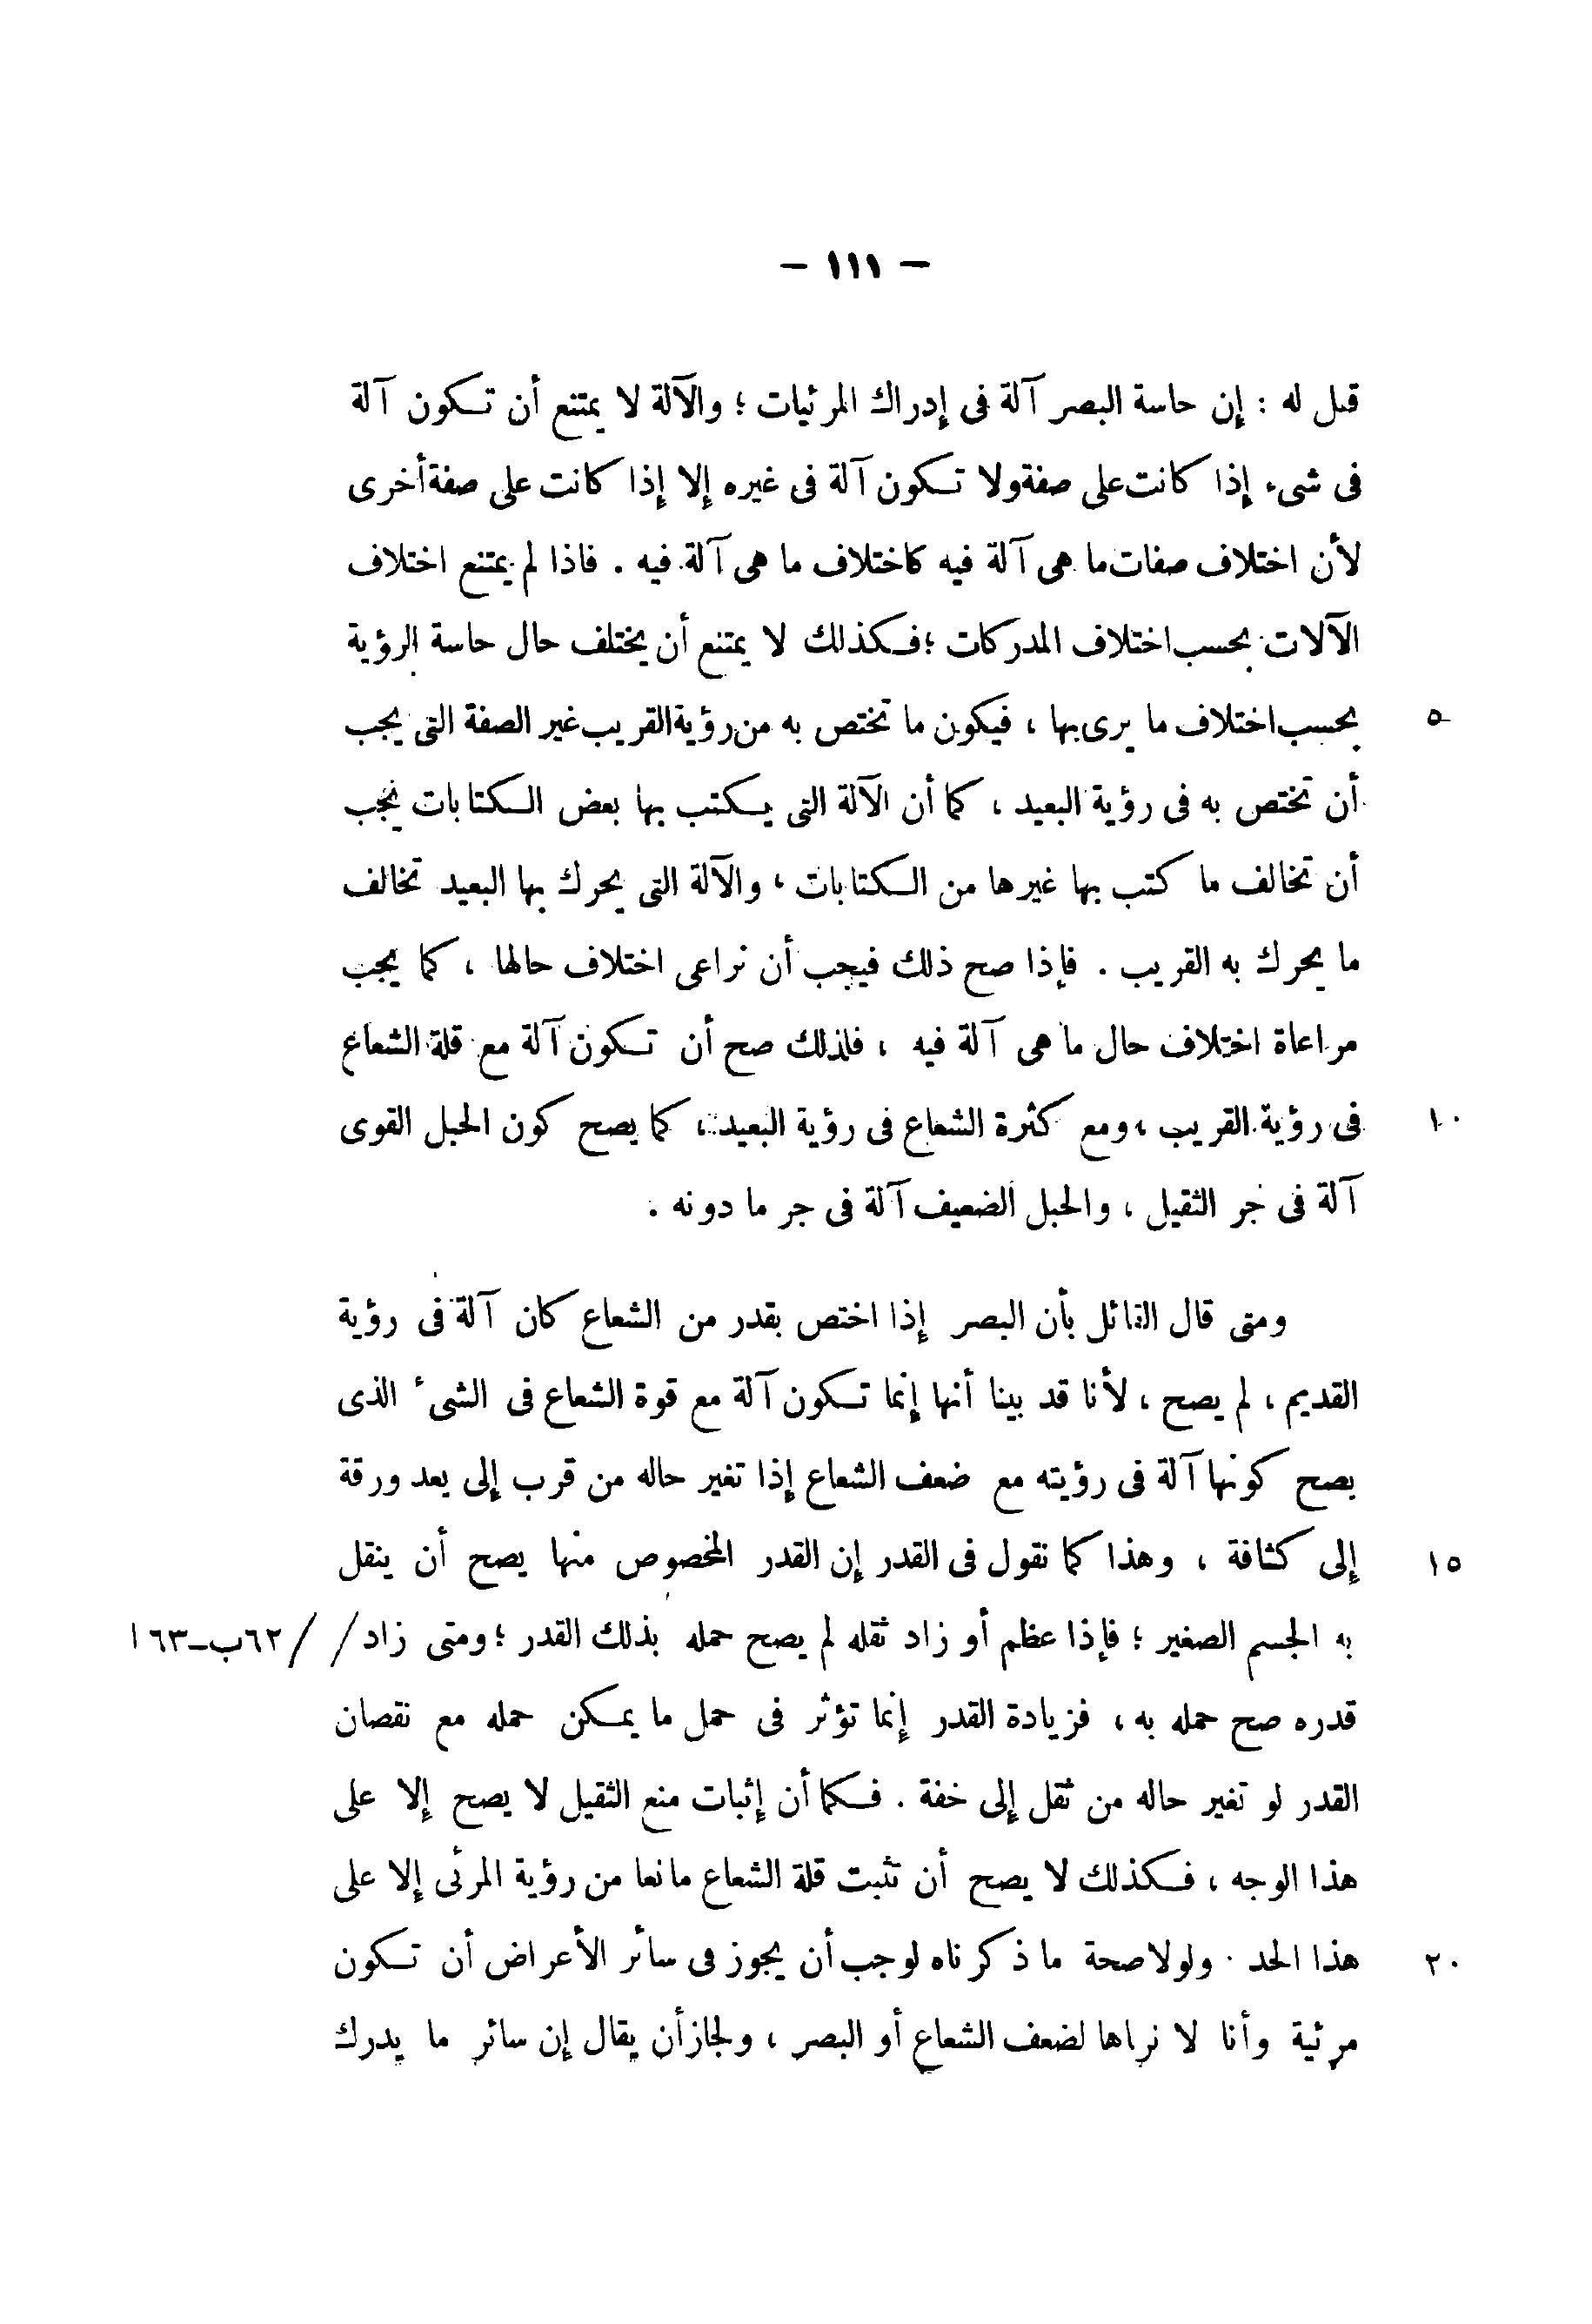 — ١١١ —
قيل له : إن حاسة البصر آلة فى إدراك المرئيات ؛ والآلة لا يمتنع أن تكون آلة
فى شىء إذا كانت على صفة ولا تكون آلة فى غيره إلا إذا كانت على صفة أخرى
لأن اختلاف صفات ما هى آلة فيه كاختلاف ما هى آلة فيه . فاذا لم يمتنع اختلاف
الآلات بحسب اختلاف المدركات ؛ فكذلك لا يمتنع أن يختلف حال حاسة الرؤية
بحسب اختلاف ما يرى بها ، فيكون ما تختص به من رؤية القريب غير الصفة التى يجب ٥
أن تختص به فى رؤية البعيد ، كما أن الآلة التى يكتب بها بعض الكتابات يجب
أن تخالف ما كتب بها غيرها من الكتابات ، والآلة التى يحرك بها البعيد تخالف
ما يحرك به القريب . فإذا صح ذلك فيجب أن نراعى اختلاف حالها ، كما يجب
مراعاة اختلاف حال ما هى آلة فيه ، فلذلك صح أن تكون آلة مع قلة الشعاع
فى رؤية القريب ، ومع كثرة الشعاع فى رؤية البعيد ، كما يصح كون الحبل القوى ١٠
آلة فى جر الثقيل ، والحبل الضعيف آلة فى جر ما دونه .
ومتى قال القائل بأن البصر إذا اختص بقدر من الشعاع كان آلة فى رؤية
القديم ، لم يصح ، لأنا قد بينا أنها إنما تكون آلة مع قوة الشعاع فى الشىء الذى
يصح كونها آلة فى رؤيته مع ضعف الشعاع إذا تغير حاله من قرب إلى بعد ورقة
إلى كثافة ، وهذا كما نقول فى القدر إن القدر المخصوص منها يصح أن ينقل ١٥
به الجسم الصغير ؛ فإذا عظم أو زاد ثقله لم يصح حمله بذلك القدر ؛ ومتى زاد / / ٦٢ب-٦٣ا
قدره صح حمله به ، فزيادة القدر إنما تؤثر فى حمل ما يمكن حمله مع نقصان
القدر لو تغير حاله من ثقل إلى خفة . فكما أن إثبات منع الثقيل لا يصح إلا على
هذا الوجه ، فكذلك لا يصح أن تثبت قلة الشعاع مانعا من رؤية المرئى إلا على
هذا الحد . ولولا صحة ما ذكرناه لوجب أن يجوز فى سائر الأعراض أن تكون ٢٠
مرئية وأنا لا نراها لضعف الشعاع أو البصر ، ولجاز أن يقال إن سائر ما يدرك